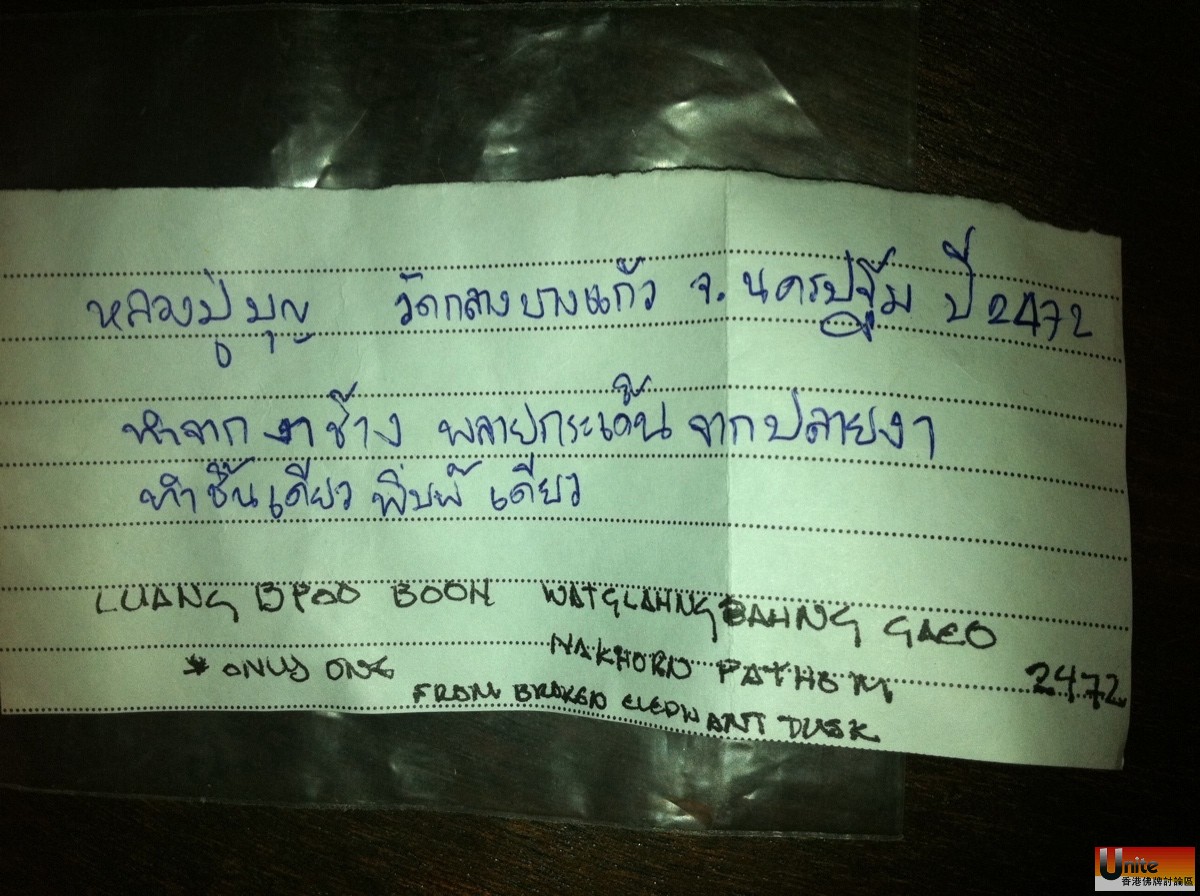 หลวงปู่บุญ วัดกลางบางแก้ว จ.นครปฐม ปี 2472
ทำจากงาช้าง พลายกระเด็น จากปลายงา
ทำชิ้นเดียว พิมพ์เดียว
LUANG BPOO BOON WATGLAHNG BAHNG GAEO
NAKHORN PATHOM 2472
* ONLY ONE
FROM BROKEN ELEPHANT TUSK
Unite
香港佛牌討論區